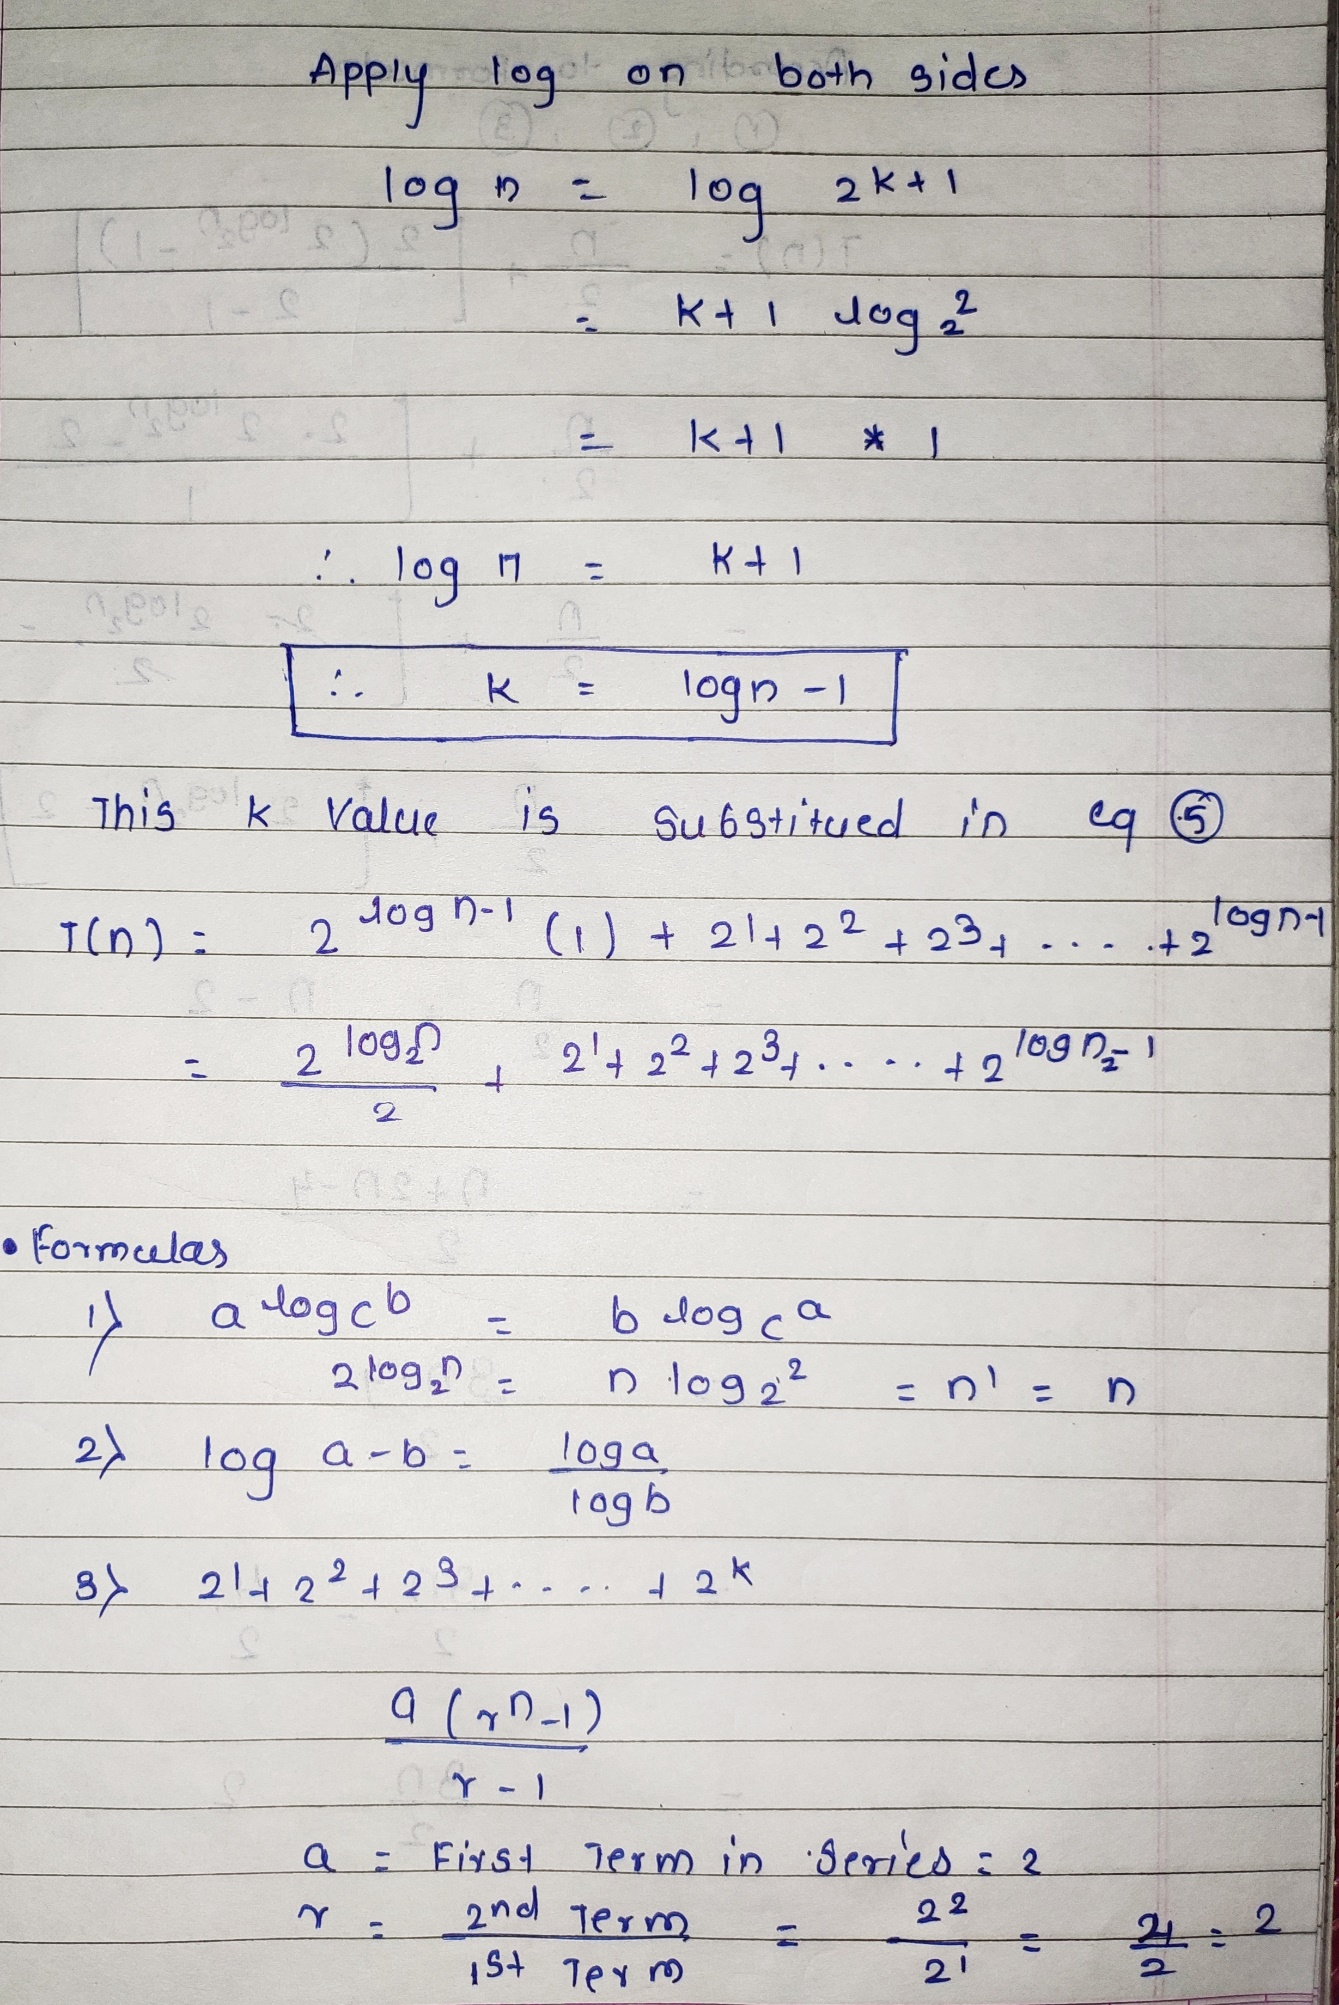 Apply log on both sides
log n = log 2^k+1
= k+1 log₂2
= k+1 * 1
∴ log n = k+1
∴ k = log n -1
This k Value is substitued in eq ⑤
T(n) = 2^log n-1 (1) + 2¹+2²+2³+ .... +2^log n-1
= 2^log₂n / 2 + 2¹+2²+2³+ ..... +2^log₂n-1
• Formulas
1) a^log_c b = b^log_c a
2^log₂n = n^log₂2 = n¹ = n
2) log a-b = log a / log b
3) 2¹+2²+2³+ ..... +2^k
a(r^n-1) / r-1
a = First Term in Series = 2
r = 2nd Term / 1st Term = 2² / 2¹ = 4/2 = 2